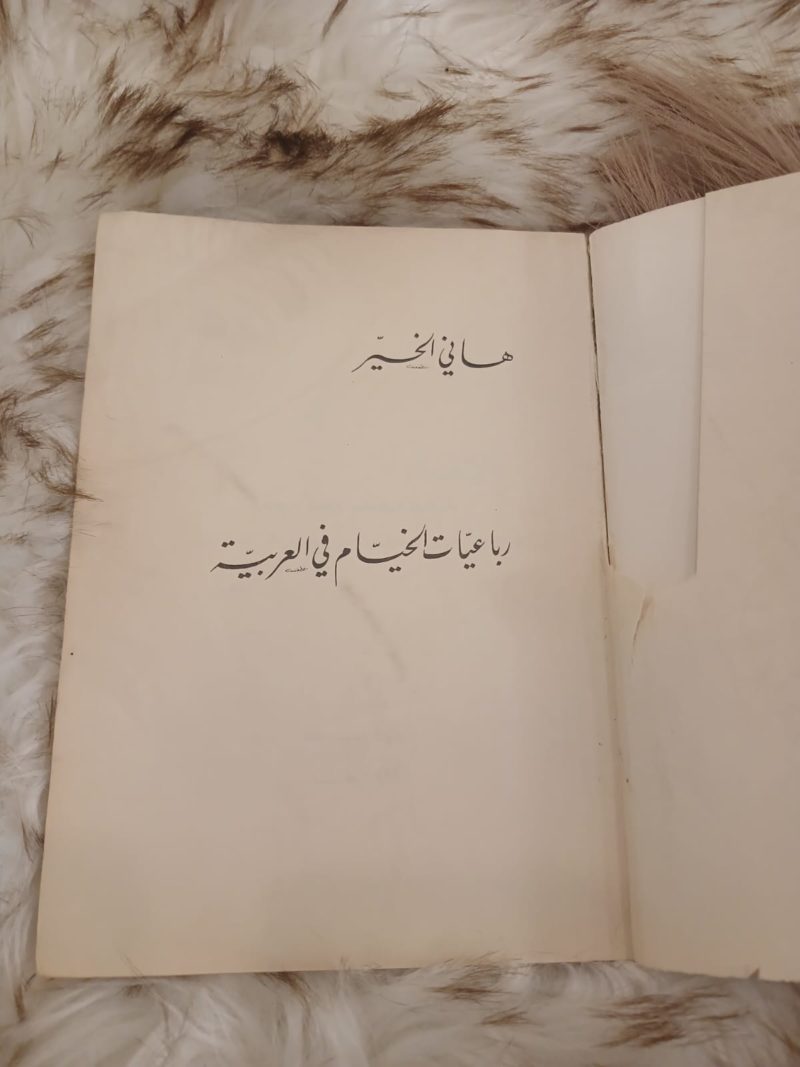 هاني الخيّر
رباعيّات الخيّام في العربيّة